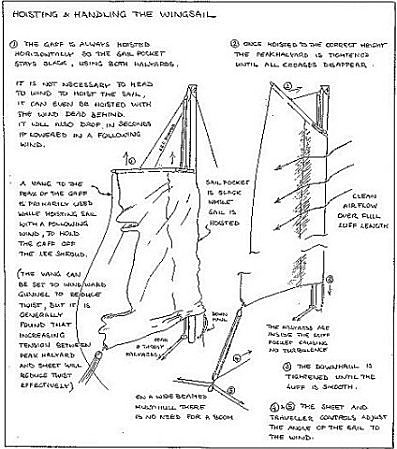 HOISTING & HANDLING THE WINGSAIL
① THE GAFF IS ALWAYS HOISTED
HORIZONTALLY SO THE SAIL POCKET
STAYS SLACK, USING BOTH HALYARDS.
IT IS NOT NECESSARY TO HEAD
TO WIND TO HOIST THE SAIL,
IT CAN EVEN BE HOISTED WITH
THE WIND DEAD BEHIND.
IT WILL ALSO DROP IN SECONDS
IF LOWERED IN A FOLLOWING
WIND.
A VANG TO THE
PEAK OF THE GAFF
IS PRIMARILY USED
WHILE HOISTING SAIL
WITH A FOLLOWING
WIND, TO HOLD
THE GAFF OFF
THE LEE SHROUD.
(THE VANG CAN
BE SET TO WINDWARD
GUNNEL TO REDUCE
TWIST, BUT IT IS
GENERALLY
FOUND THAT
INCREASING
TENSION BETWEEN
PEAK HALYARD
AND SHEET WILL
REDUCE TWIST
EFFECTIVELY)
①
SAIL POCKET
IS SLACK
WHILE
SAIL IS
HOISTED
DOWN
HAUL
PEAK
& THROAT
HALYARDS
ON A WIDE BEAMED
MULTIHULL THERE
IS NO NEED FOR A BOOM
② ONCE HOISTED TO THE CORRECT HEIGHT
THE PEAK HALYARD IS TIGHTENED
UNTIL ALL CREASES DISAPPEAR.
②
CLEAN
AIRFLOW
OVER FULL
LUFF LENGTH
③
④
⑤
THE HALYARDS ARE
INSIDE THE LUFF
POCKET CAUSING
NO TURBULENCE
③ THE DOWNHAUL IS
TIGHTENED UNTIL THE
LUFF IS SMOOTH.
④&⑤ THE SHEET AND
TRAVELLER CONTROLS ADJUST
THE ANGLE OF THE SAIL TO
THE WIND.